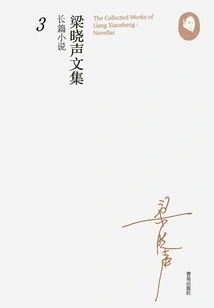 The Collected Works of
Liang Xiaosheng :
Novellas
梁晓声文集
长篇小说
3
梁晓声
青岛出版社